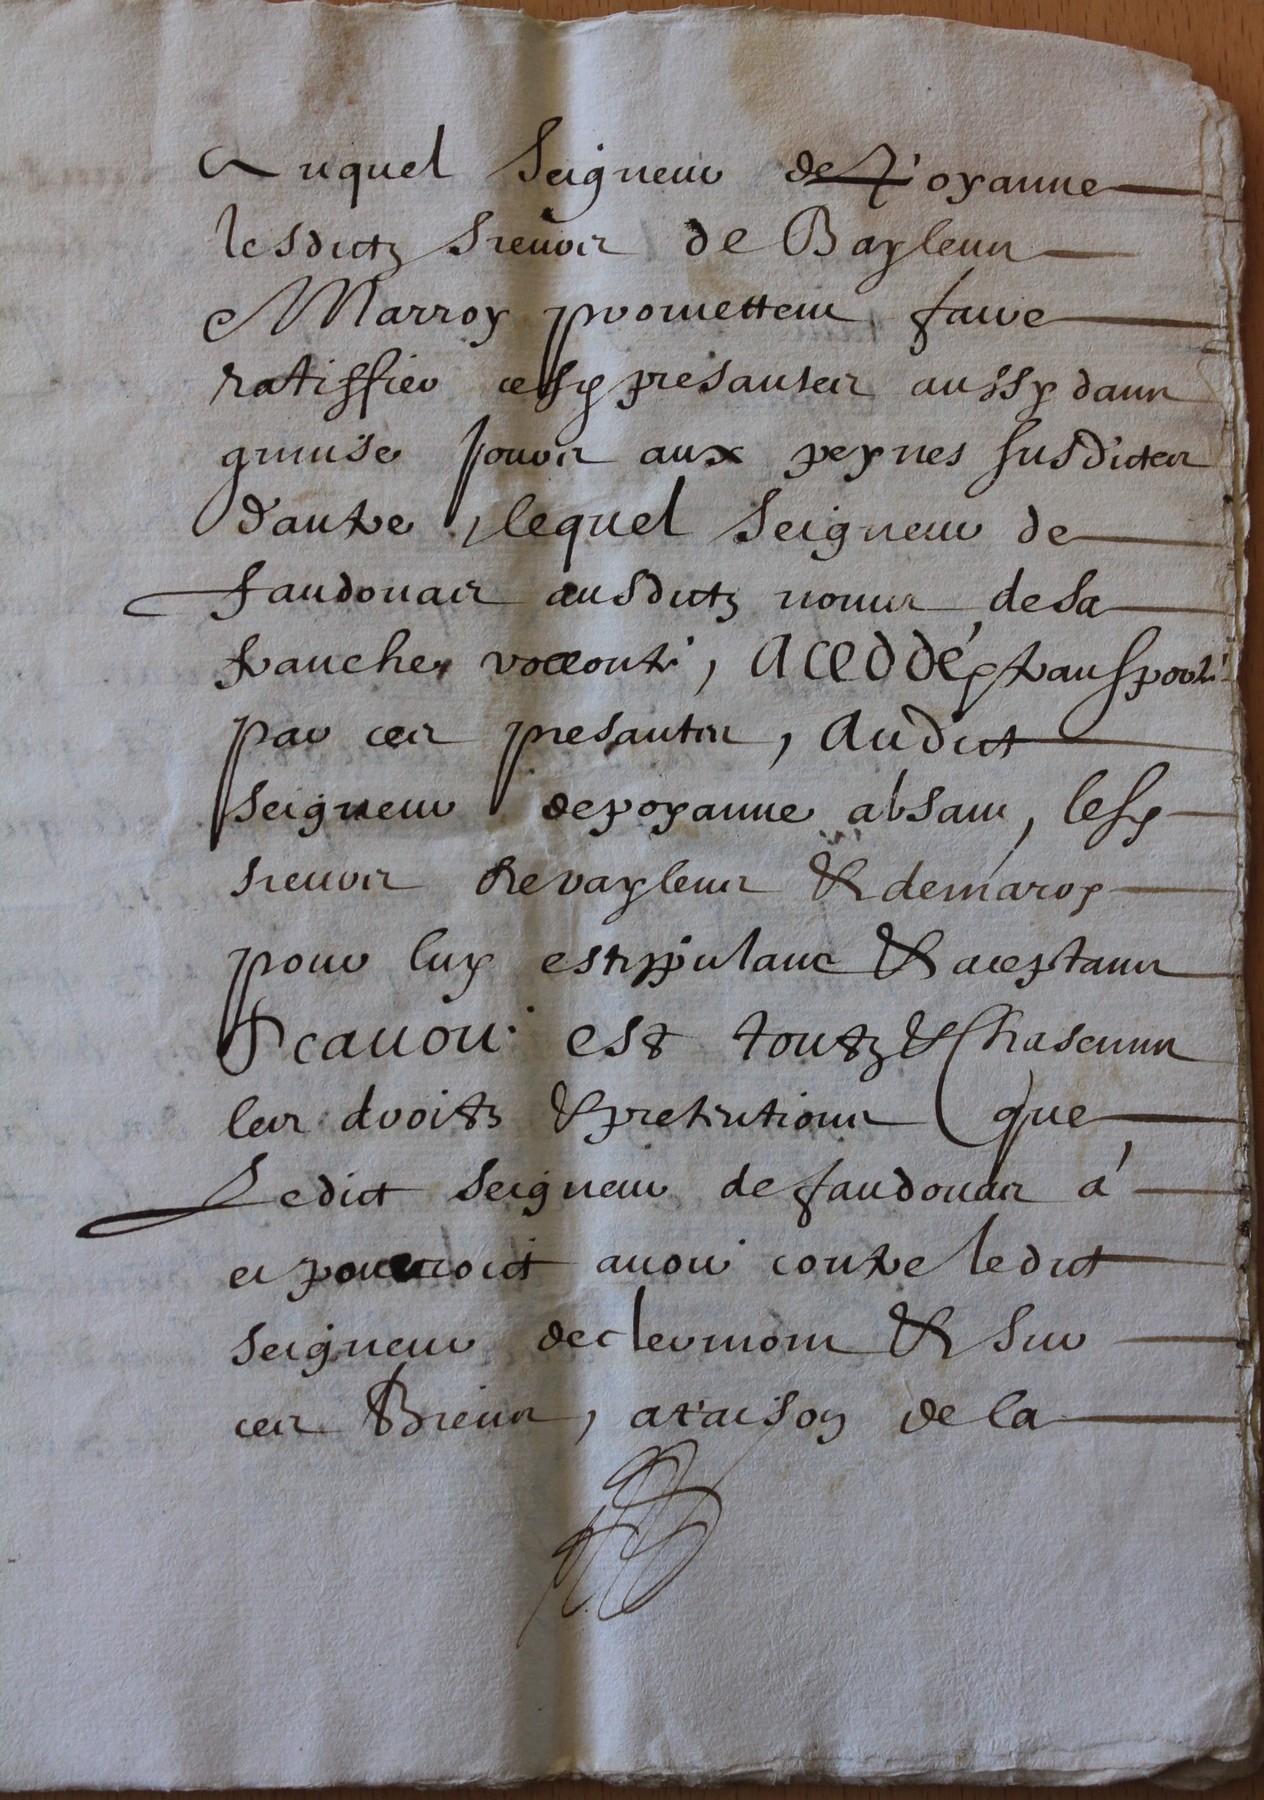 Auquel Seigneur de Poyanne
lesdictz sieurs de Baylenx
Marroy promettent faire
ratiffier cesy presantes aussy dans
quinse jours aux peynes susdictes
d'autre, lequel Seigneur de
faudouas ausdictz noms de sa
franche vollonté, A ceddé & transporté
par ces presantes, Audict
seigneur de poyanne absant, lesd
sieurs de vaylenx & de maroy
pour luy estippulant & aceptans
Scavoir est toutz & Chascuns
les droitz & pretentions que
Ledict seigneur de faudouas á
et pourroict avoir contre ledict
seigneur de clermont & sur
ces Biens, a raison de la